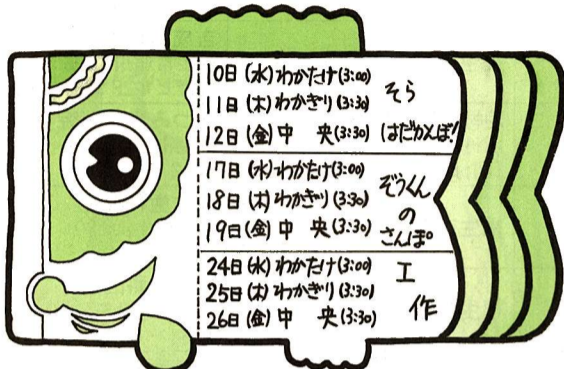 10日(水)わかたけ(3:00)
11日(木)わかぎり(3:30)
12日(金)中 央(3:30)
そら
はだかんぼ!
17日(水)わかたけ(3:00)
18日(木)わかぎり(3:30)
19日(金)中 央(3:30)
ぞうくん
の
さんぽ
24日(水)わかたけ(3:00)
25日(木)わかぎり(3:30)
26日(金)中 央(3:30)
工
作